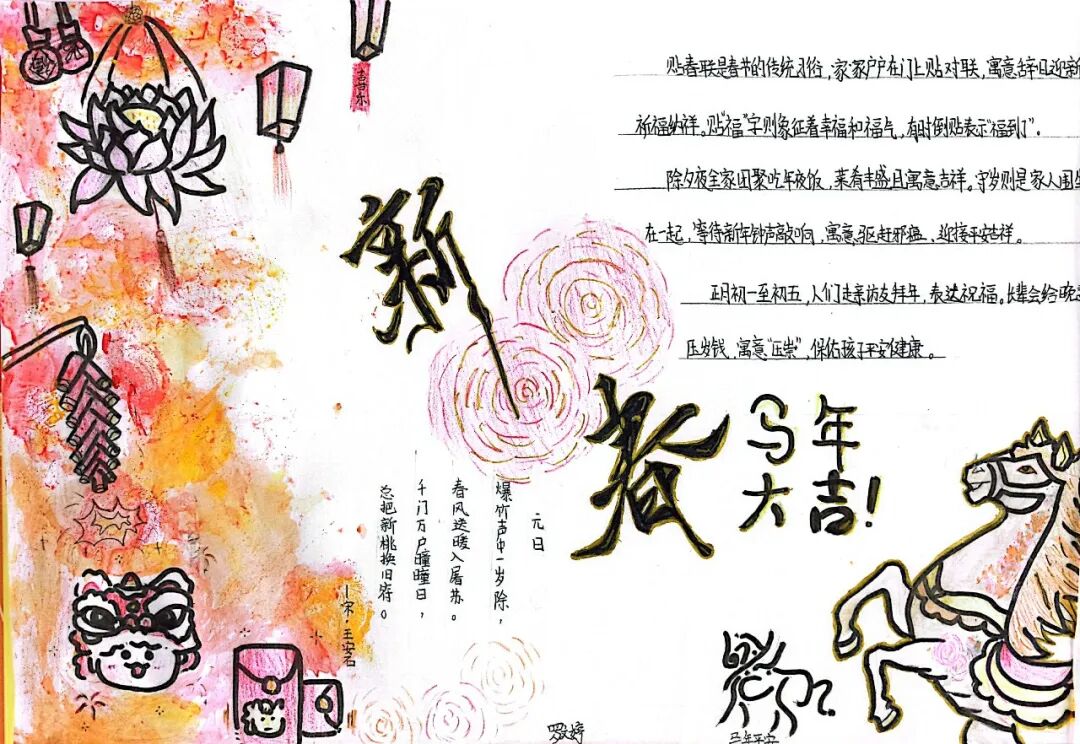 贴春联是春节的传统习俗，家家户户在门上贴对联，寓意辞旧迎新
祈福纳祥。贴“福”字则象征着幸福和福气，有时倒贴表示“福到了”.
除夕夜全家团聚吃年夜饭，菜肴丰盛且寓意吉祥。守岁则是家人围坐
在一起，等待新年钟声敲响，寓意驱赶邪瘟、迎接平安吉祥。
正月初一至初五，人们走亲访友拜年，表达祝福。长辈会给晚
压岁钱，寓意“压祟”，保佑孩子平安健康。
新春
马年
大吉!
元日
爆竹声中一岁除，
春风送暖入屠苏。
千门万户曈曈日，
总把新桃换旧符。
—宋·王安石
马年平安